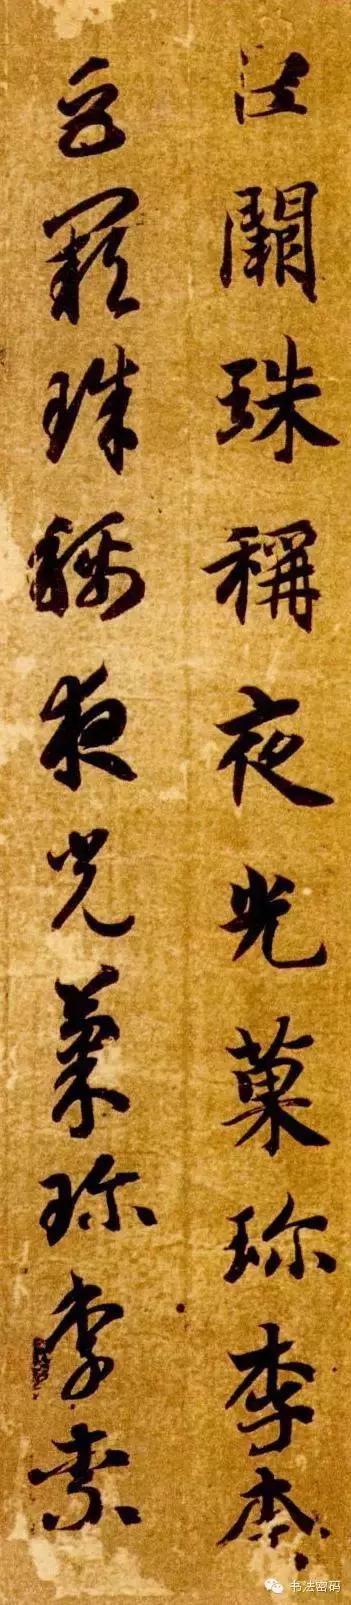 巨闕珠稱夜光菓珎李柰
巨闕珠稱夜光菓珎李柰
书法密码